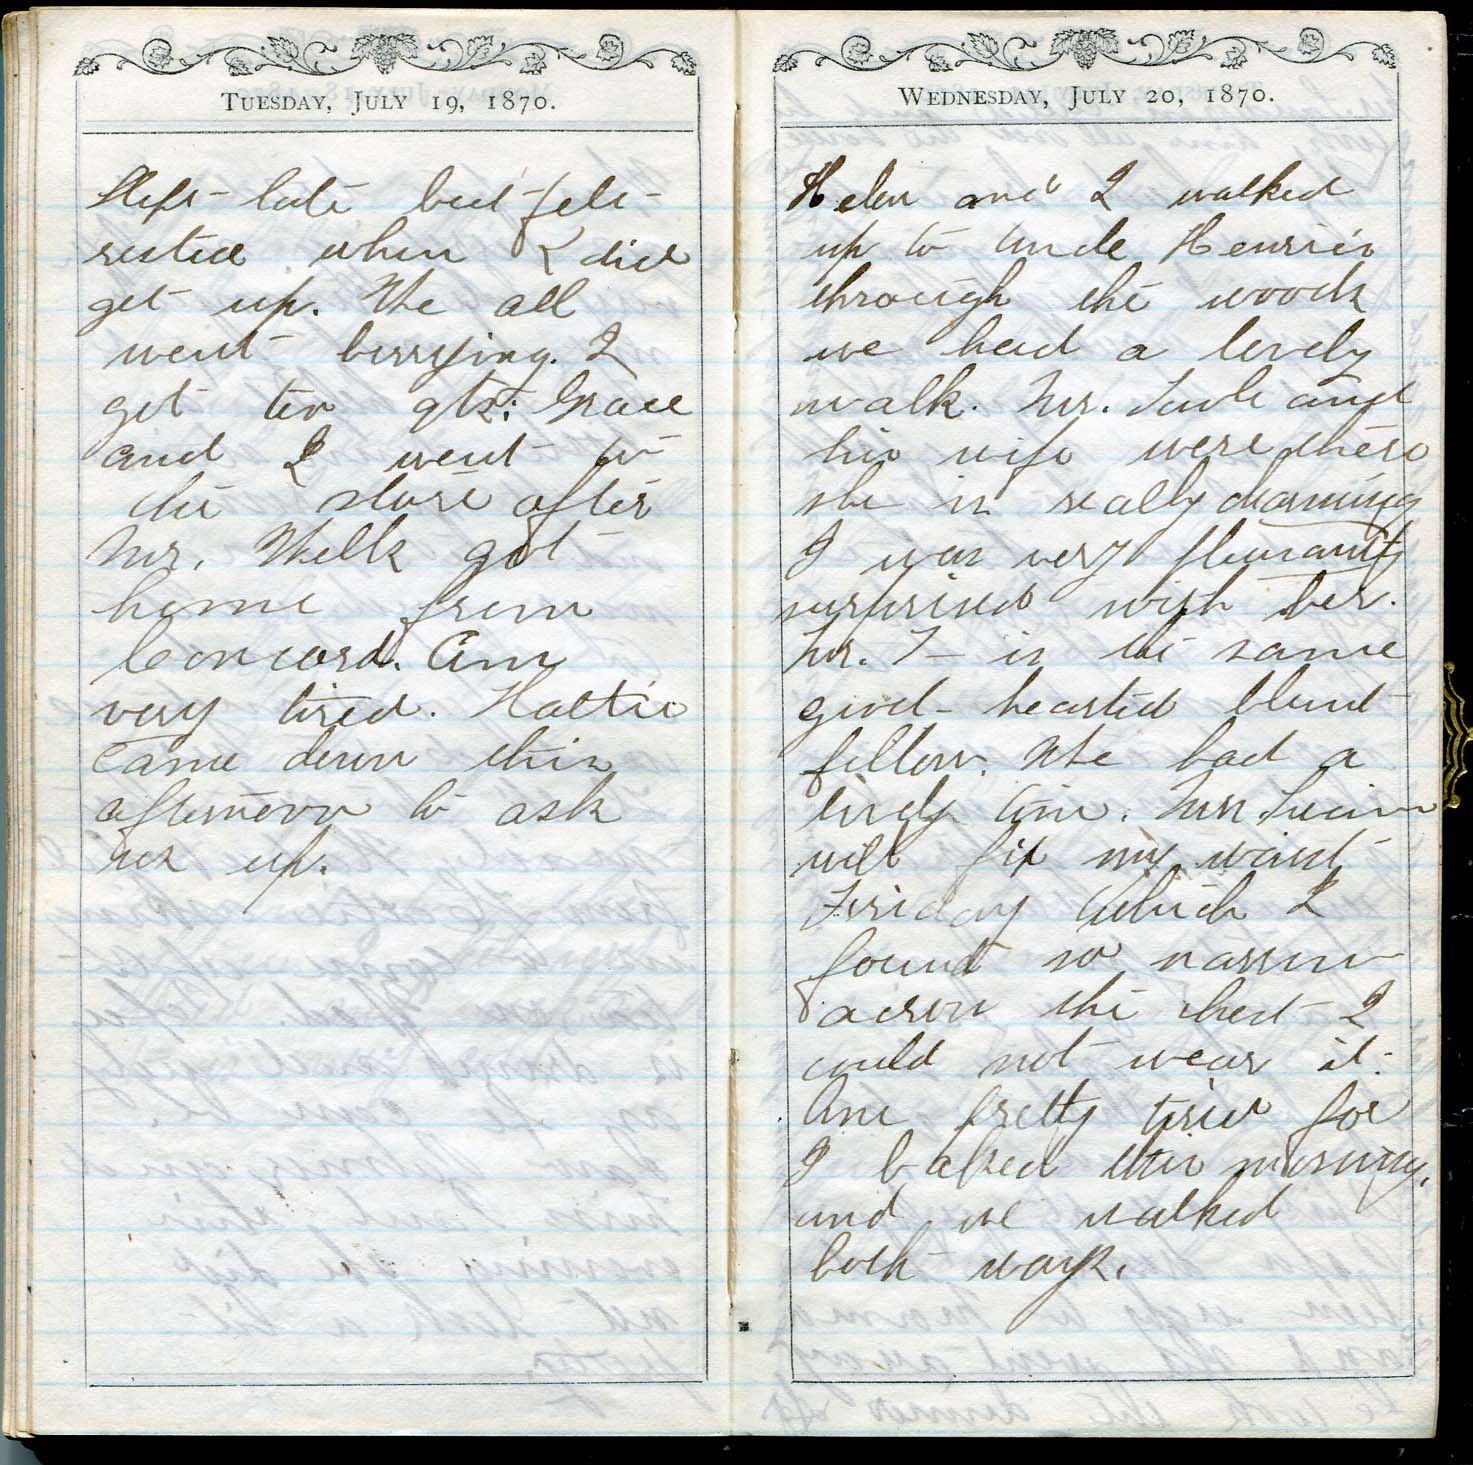 TUESDAY, JULY 19, 1870.
Slept late but felt
rested when I did
get up. We all
went berrying. I
got ten qts. Grace
and I went to
the store after
Mr. Wells got
home from
Concord. Am
very tired. Hattie
came down this
afternoon to ask
us up.
WEDNESDAY, JULY 20, 1870.
Helen and I walked
up to Uncle Henries
through the woods
we had a lovely
walk. Mr. and
his wife were there
she is really charming
I was very pleasantly
surprised with her.
Mr. T- is the same
good-hearted blunt
fellow. We had a
lively time. Mrs.
will fix my waist
Friday which I
found so narrow
across the chest I
could not wear it.
Am pretty tired for
I baked this morning,
and we walked
both ways.